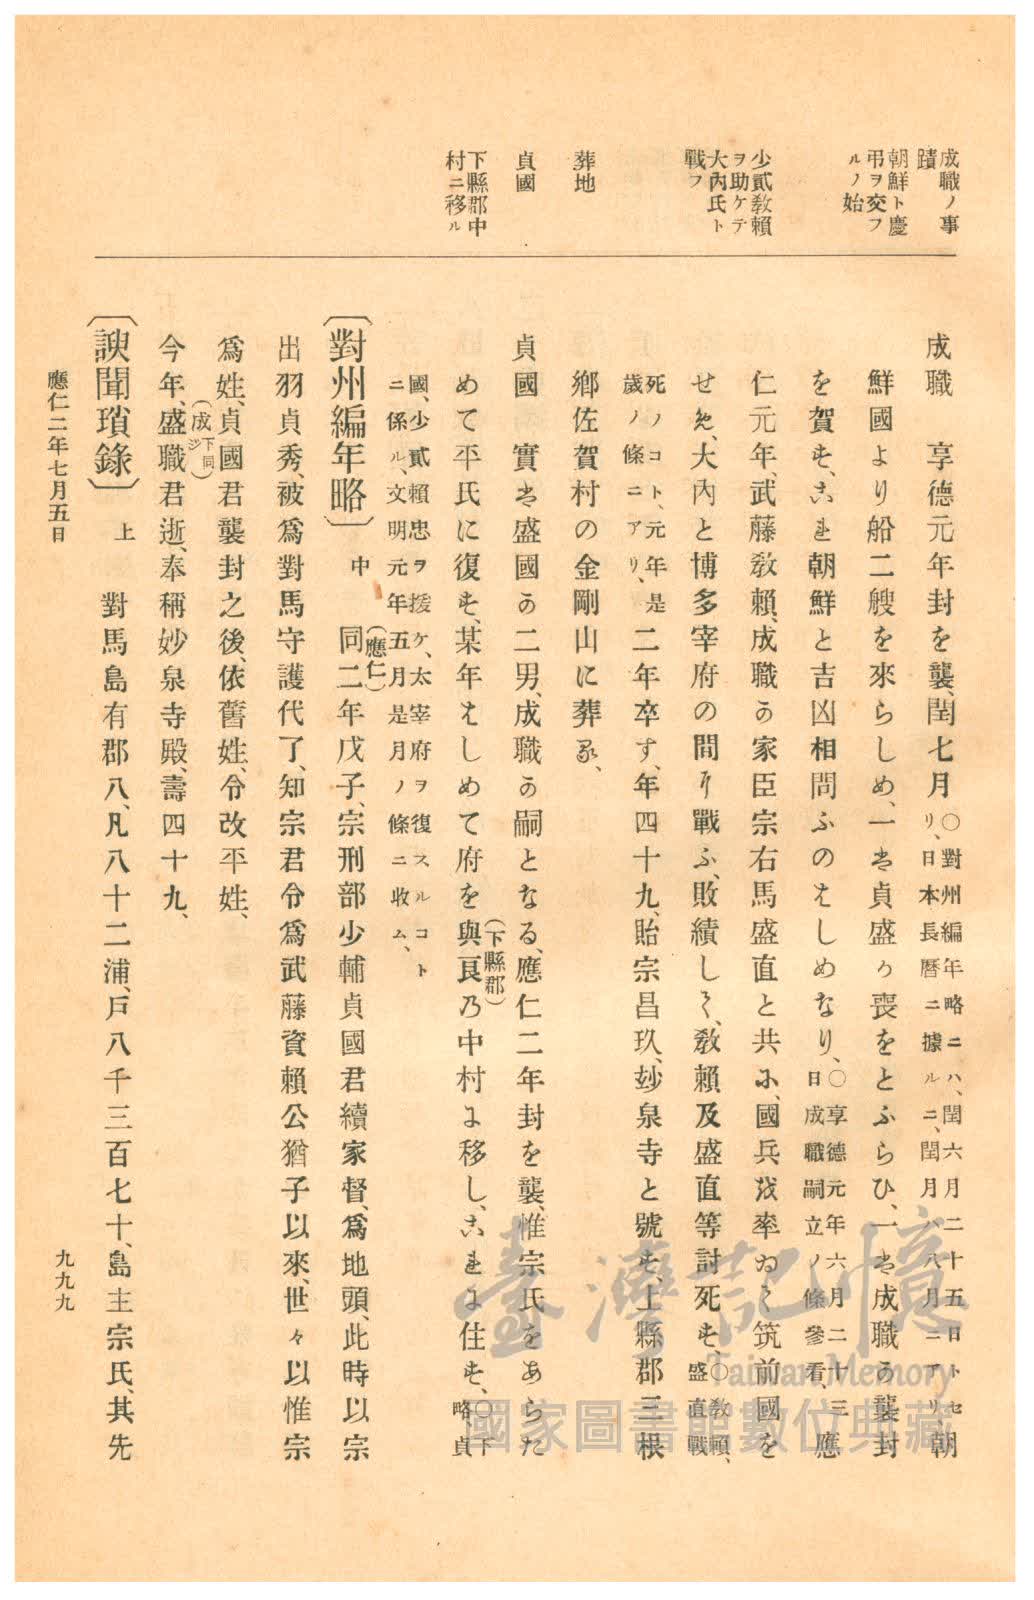 成職ノ事
蹟
朝鮮ト慶
弔ヲ交フ
ルノ始
少貳敎賴
ヲ助ケテ
大內氏ト
戰フ
葬地
貞國
下縣郡中
村ニ移ル
成職　享德元年封を襲、閏七月〇對州編年略ニハ、閏六月二十五日トセリ、日本長曆ニ據ルニ、閏月ハ八月ニアリ、朝
鮮國より船二艘を來らしめ、一ハ貞盛か喪をとふらひ、一ハ成職の襲封
を賀す、これ朝鮮と吉凶相問ふのはしめなり、〇享德元年六月二十三日成職嗣立ノ條參看、應
仁元年、武藤敎賴、成職の家臣宗右馬盛直と共に、國兵を率ゐて筑前國を
せめ、大內と博多宰府の間に戰ふ、敗績して、敎賴及盛直等討死す、〇敎賴、盛直戰
死ノコト、元年是歲ノ條ニアリ、二年卒す、年四十九、貽宗昌玖、玅泉寺と號す、上縣郡三根
鄕佐賀村の金剛山に葬る、
貞國　實ハ盛國の二男、成職の嗣となる、應仁二年封を襲、惟宗氏をあらた
めて平氏に復す、某年はしめて府を與良(下縣郡)乃中村に移し、これに住す、〇下略、貞
國、少貳賴忠ヲ援ケ、太宰府ヲ復スルコトニ係ル、文明元年五月是月ノ條ニ收ム、
〔對州編年略〕中　同(應仁)二年戊子、宗刑部少輔貞國君續家督、爲地頭、此時以宗
出羽貞秀、被爲對馬守護代了、知宗君令爲武藤資賴公猶子以來、世々以惟宗
爲姓、貞國君襲封之後、依舊姓、令改平姓、
今年、盛(成下同ジ)職君逝、奉稱妙泉寺殿、壽四十九、
〔諛聞瑣錄〕上　對馬島有郡八、凡八十二浦、戶八千三百七十、島主宗氏、其先
應仁二年七月五日
九九九
臺灣記憶
Taiwan Memory
國家圖書館數位典藏